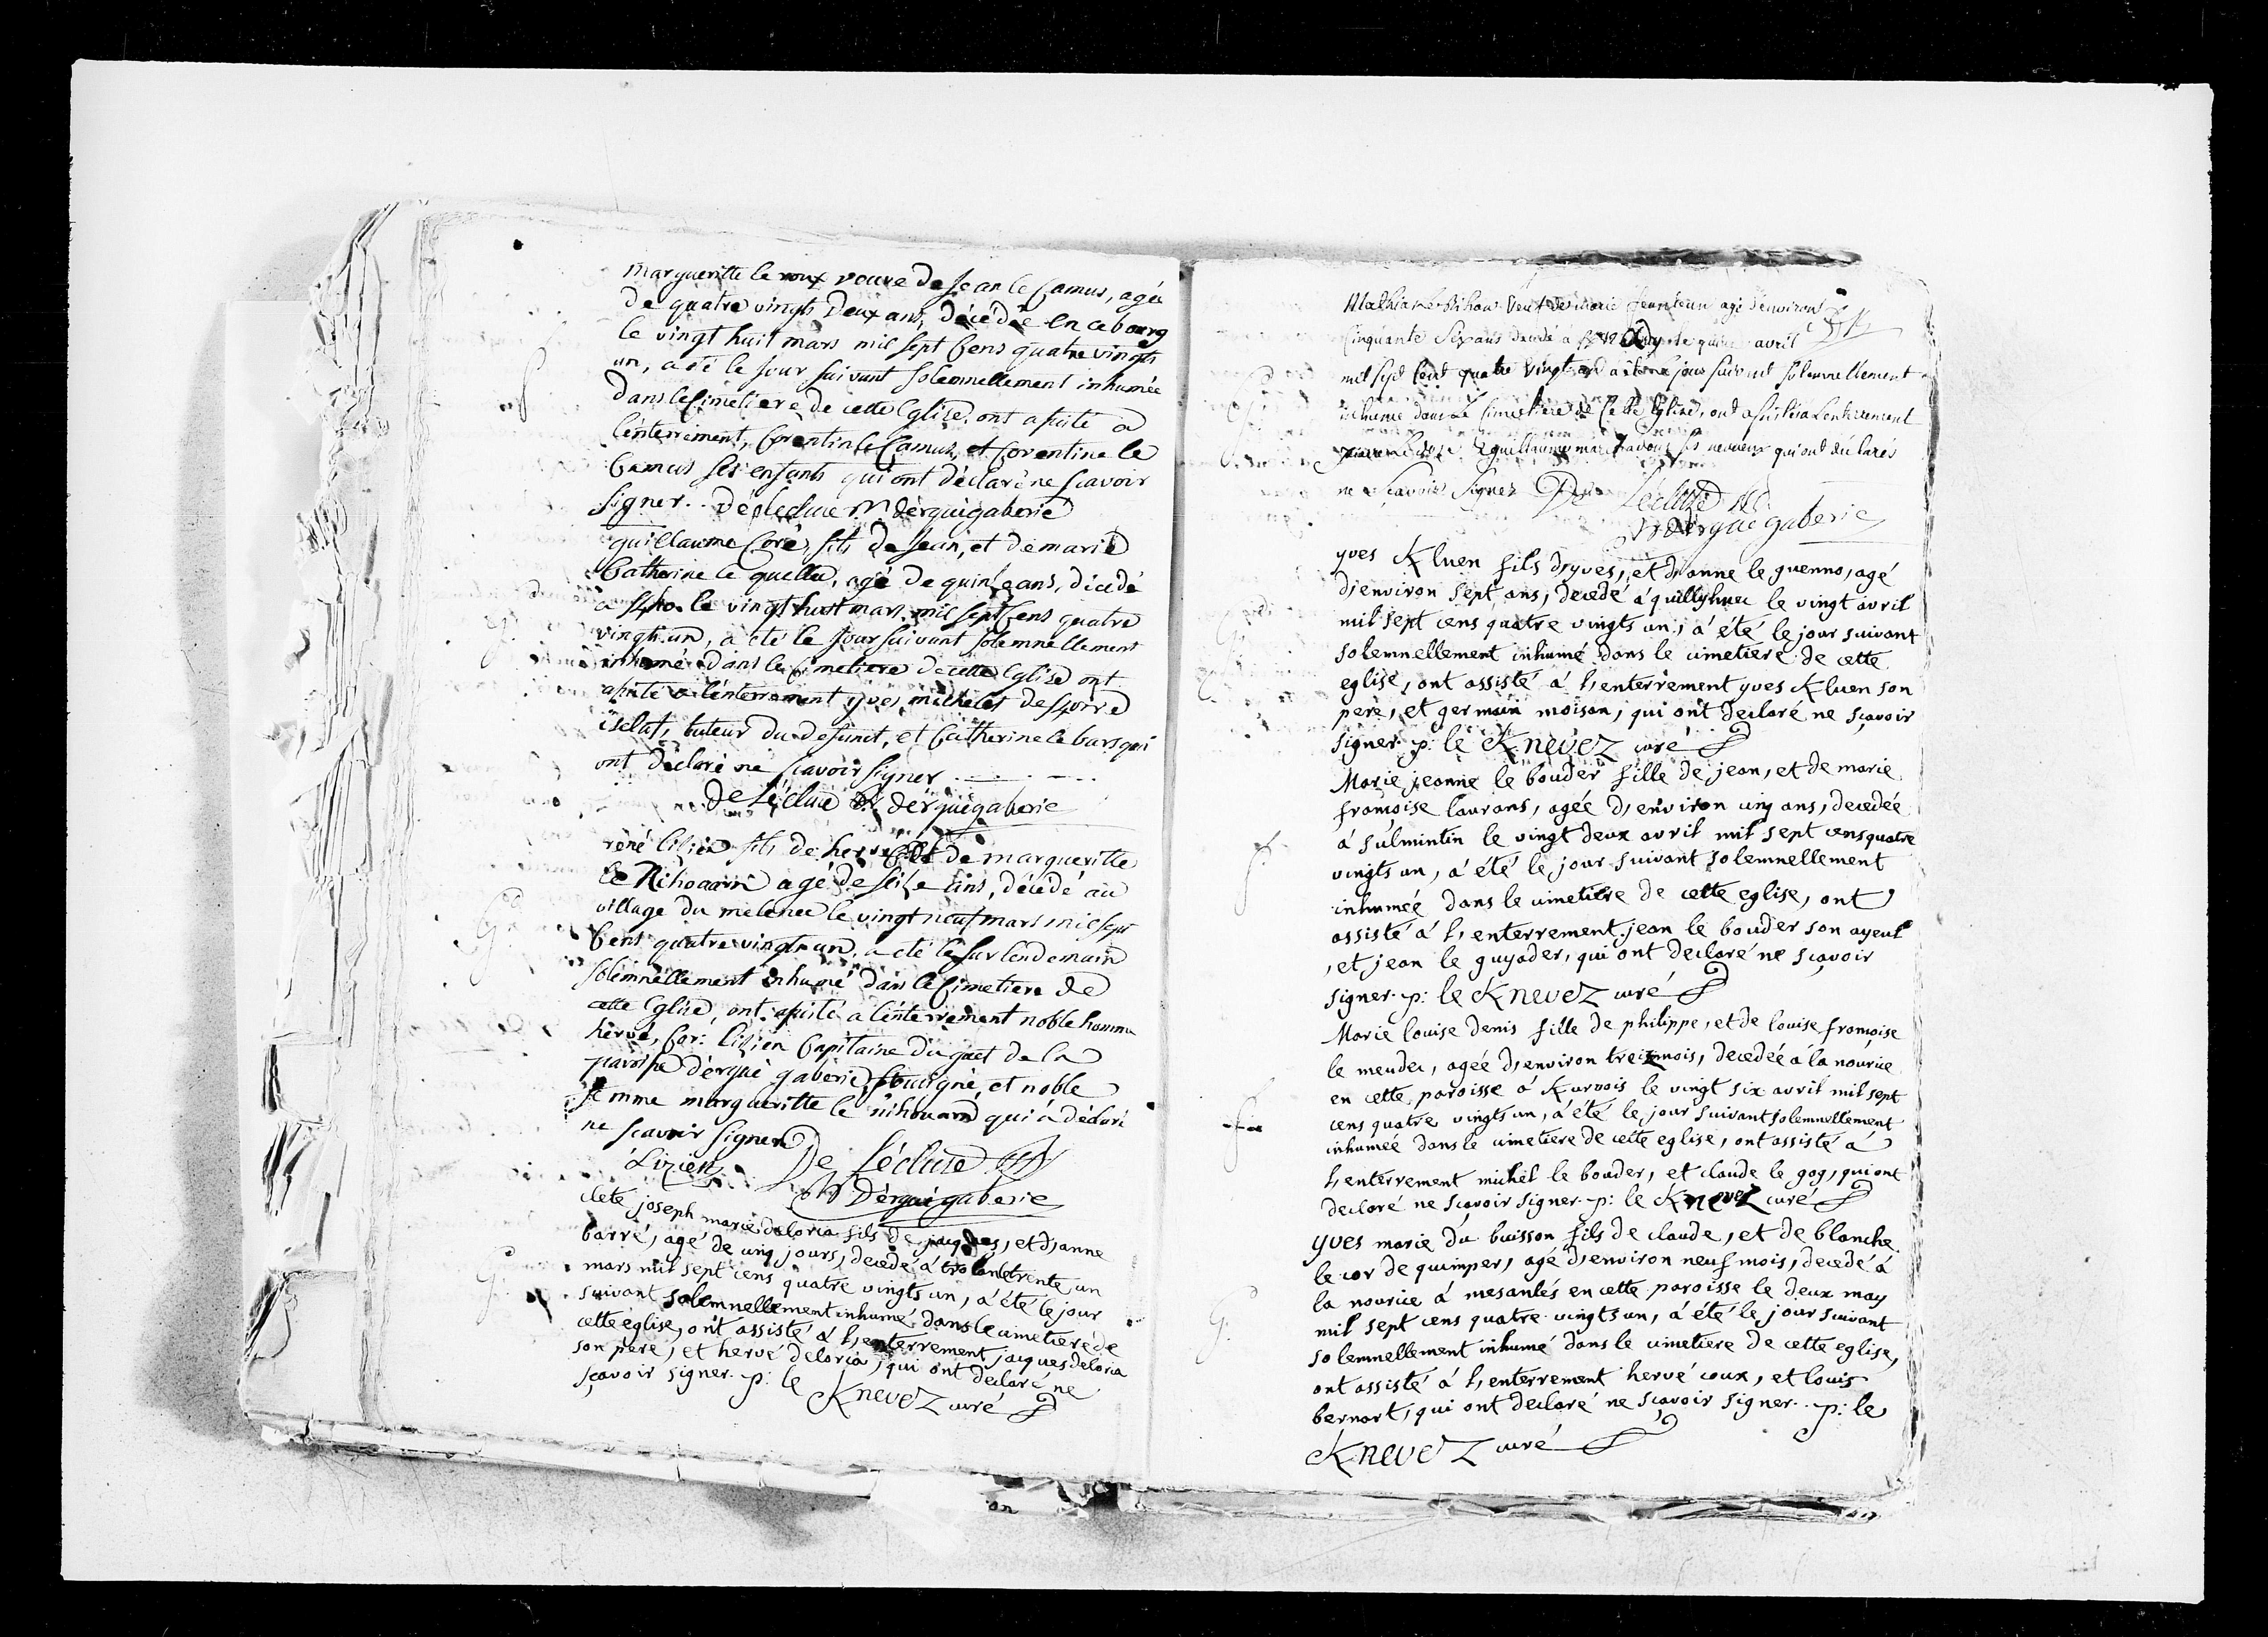 margueritte le roux veuve de jean le Camus, agée
de quatre vingts deux ans, décédée en ce bourg
le vingt huit mars mil sept Cens quatre vingts
un, a été le jour suivant solemnellement inhumée
dans le Cimetiere de cette Eglise, ont assisté a
l'enterrement, Corentin le Camus, et Corentine le
Camus ses enfants qui ont déclaré ne scavoir
signer.. De lecluse Rr d'erguégaberic
guillaume Coré, fils de jean, et de marie
Catherine le quellec, agé de quinze ans, décédé
a le vingt huit mars mil sept Cens quatre
vingts un, a été le jour suivant solemnellement
inhumé dans le Cimetiere de cette Eglise ont
assisté a l'enterrement yves michelet
tuteur du defunct, et Catherine le bars qui
ont déclaré ne scavoir signer.
De Lécluse Rr d'erguégaberic
réné lizien fils de hervé et de margueritte
le Nihouarn agé de seize ans, décédé au
village du melenec le vingt neuf mars mil sept
Cens quatre vingts un, a été le surlendemain
solemnellement inhumé dans le Cimetiere de
cette Eglise, ont assisté a l'enterrement noble homme
hervé, Cor: lizien Capitaine du guet de la
paroisse d'ergué gaberic et noble
femme margueritte le nihouarn qui a déclaré
ne scavoir signer De Lécluse Rr
Lizien D'erguégaberic
clete joseph marie deloria fils de jacques, et d'anne
barré, agé de cinq jours, decedé á trolan le trente un
mars mil sept cens quatre vingts un, á été le jour
suivant solemnellement inhumé dans le cimetiere de
cette eglise, ont assisté á l'enterrement jacques deloria
son pere, et hervé deloria, qui ont declaré ne
sçavoir signer. p: le Knevez curé
veuf de marie agé d'environ
Cinquante Six ans decedé a le quinze avril
mil sept Cent quatre vingt un a été le jour suivant solemnellement
inhumé dans Le Cimetiere de Cette Eglise, ont assisté a Lenterrement
guillaume ses neveux qui ont déclarés
ne Scavoir Signer De Lécluse Rr
d'erguégaberic
yves Kluen fils d'yves, et d'anne le guenno, agé
d'environ sept ans, decedé á quillyhuec le vingt avril
mil sept cens quatre vingts un, á été le jour suivant
solemnellement inhumé dans le cimetiere de cette
eglise, ont assisté á l'enterrement yves Kluen son
pere, et germain moisan, qui ont declaré ne sçavoir
signer. p: le Knevez curé
Marie jeanne le bouder fille de jean, et de marie
françoise laurans, agée d'environ cinq ans, decedée
á sulmintin le vingt deux avril mil sept cens quatre
vingts un, á été le jour suivant solemnellement
inhumée dans le cimetiere de cette eglise, ont
assisté á l'enterrement jean le bouder son ayeul
, et jean le guyader, qui ont declaré ne sçavoir
signer. p: le Knevez curé
Marie louise denis fille de philippe, et de louise françoise
le meudec, agée d'environ treize mois, decedée á la nourice
en cette paroisse á Kurvois le vingt six avril mil sept
cens quatre vingts un, á été le jour suivant solemnellement
inhumée dans le cimetiere de cette eglise, ont assisté á
l'enterrement michel le bouder, et claude le gog, qui ont
declaré ne sçavoir signer. p: le Knevez curé
yves marie du buisson fils de claude, et de blanche
le cor de quimper, agé d'environ neuf mois, decedé á
la nourice á mesanlés en cette paroisse le deux may
mil sept cens quatre vingts un, á été le jour suivant
solemnellement inhumé dans le cimetiere de cette eglise,
ont assisté á l'enterrement hervé coux, et louis
bernart, qui ont declaré ne sçavoir signer.. p: le
Knevez curé